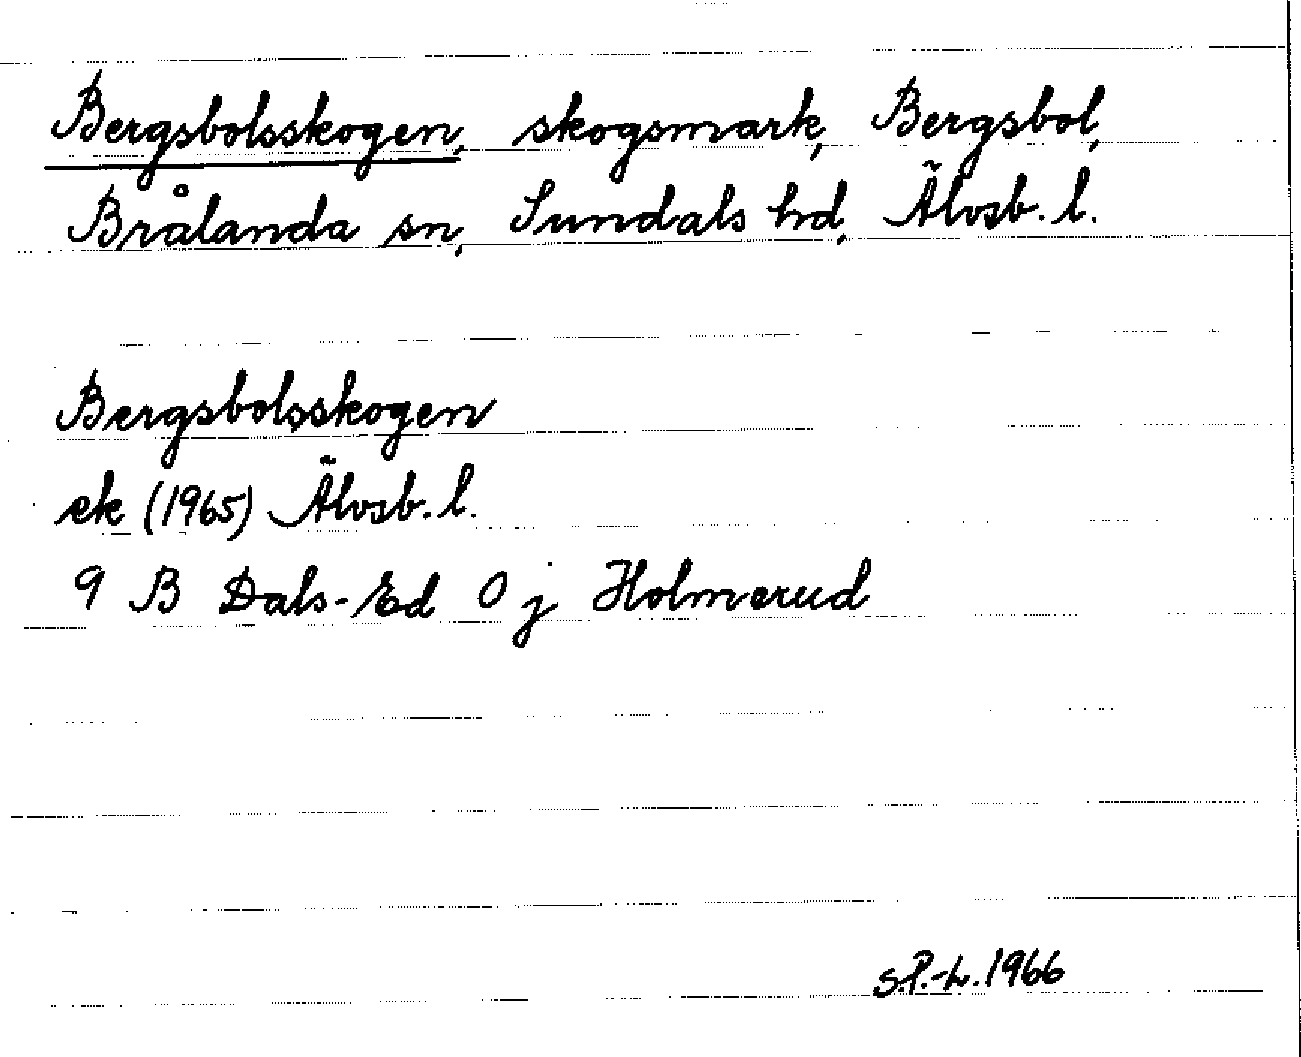 Bergsbolsskogen, skogsmark, Bergsbol,
Brålanda sn, Sundals hd, Älvsb. l.
Bergsbolsskogen
ek (1965) Älvsb. l.
9 B Dals-Ed 0 j Holmerud
S.P.-L. 1966